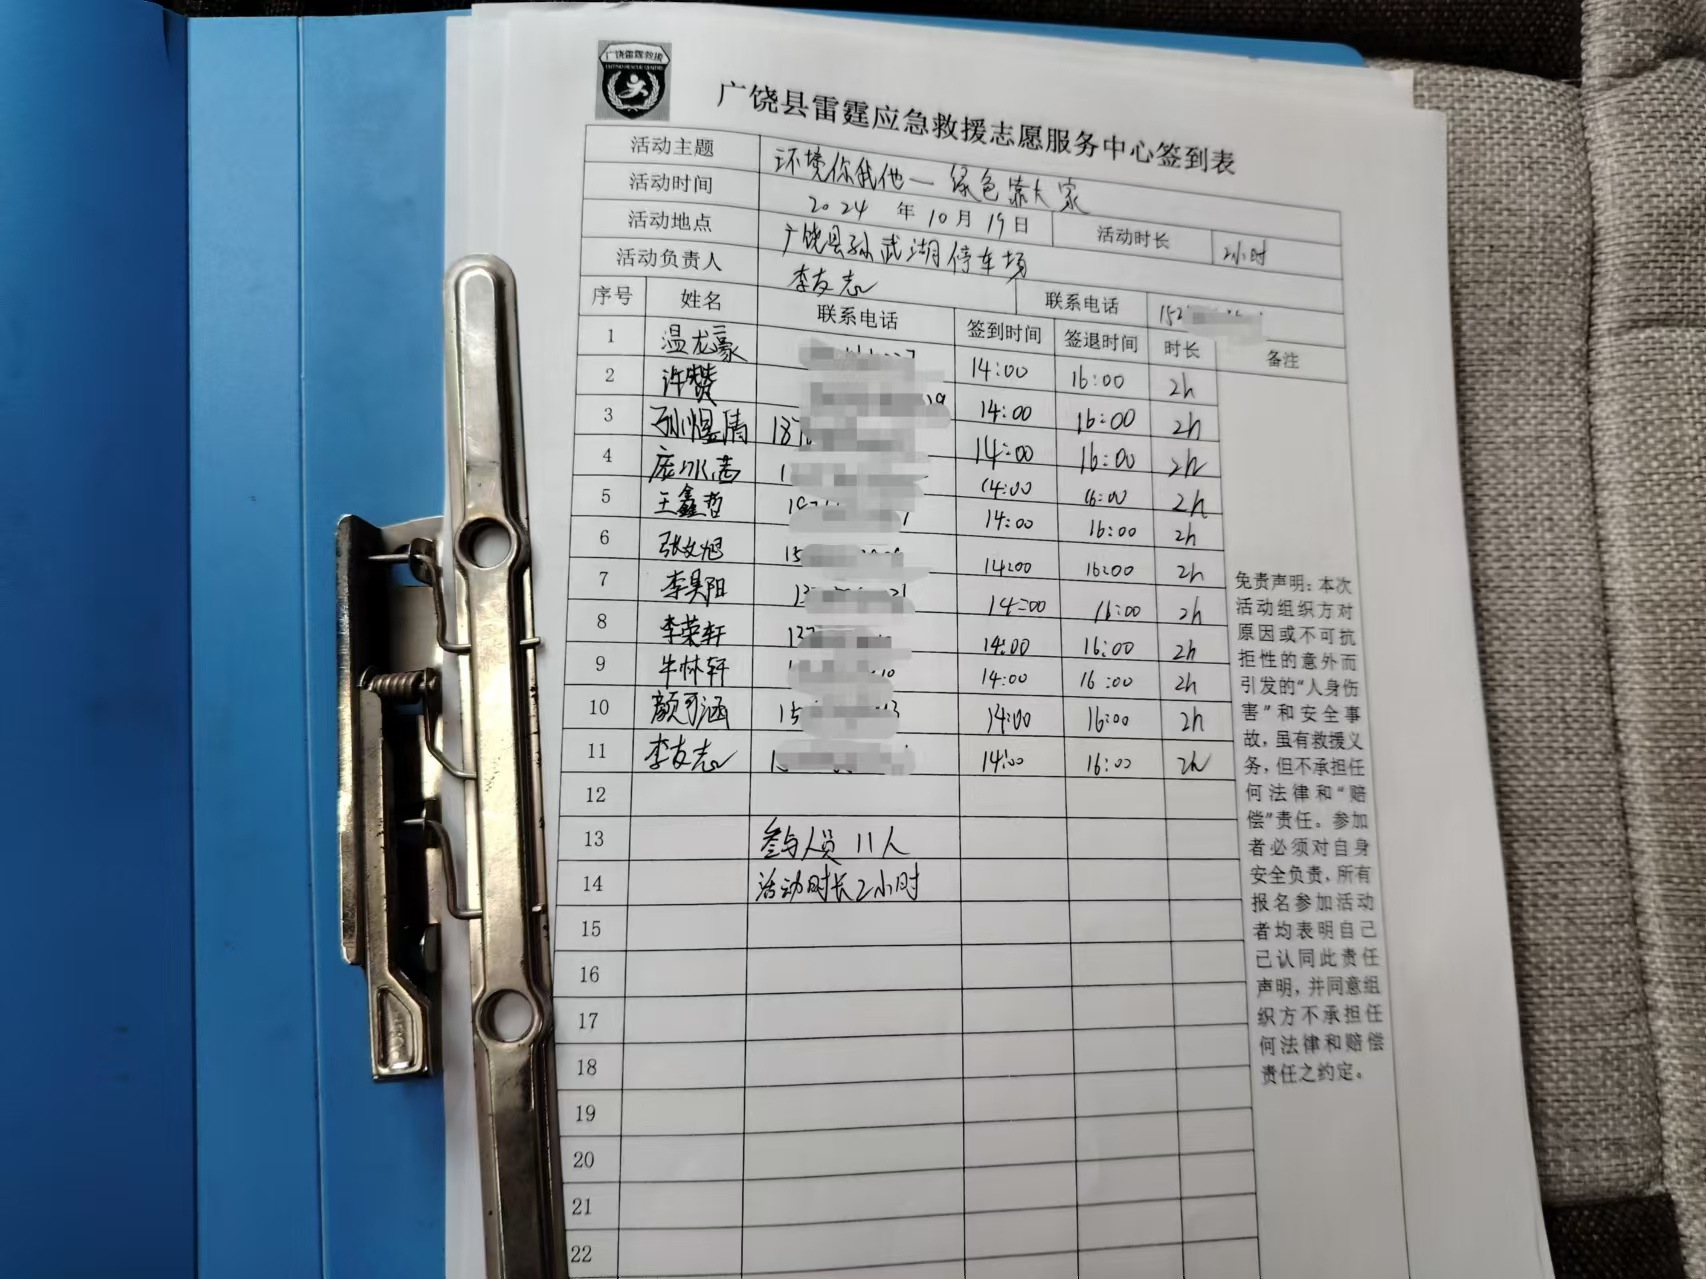 广饶雷霆救援
广饶县雷霆应急救援志愿服务中心签到表
活动主题 环境你我他一绿色靠大家
活动时间 2024 年 10 月 19 日 活动时长 2小时
活动地点 广饶县孙武湖停车场
活动负责人 李友志 联系电话 152
序号 姓名 联系电话 签到时间 签退时间 时长 备注
1 温龙豪 14:00 16:00 2h
2 许赞 14:00 16:00 2h
3 孙煜清 187 14:00 16:00 2h
4 庞冰茜 1 14:00 16:00 2h
5 王鑫哲 14:00 16:00 2h
6 张文旭 15 14:00 16:00 2h
7 李昊阳 13 14:00 16:00 2h
8 李荣轩 137 14:00 16:00 2h
9 牛林轩 14:00 16:00 2h
10 颜可涵 15 14:00 16:00 2h
11 李友志 14:00 16:00 2h
12
13 参与人员 11人
14 活动时长2小时
15
16
17
18
19
20
21
22
免责声明：本次
活动组织方对
原因或不可抗
拒性的意外而
引发的“人身伤
害”和安全事
故，虽有救援义
务，但不承担任
何法律和“赔
偿”责任。参加
者必须对自身
安全负责，所有
报名参加活动
者均表明自己
已认同此责任
声明，并同意组
织方不承担任
何法律和赔偿
责任之约定。